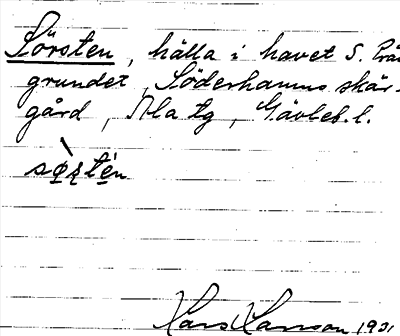 Sörsten, hälla i havet S. Prä
grundet, Söderhamns skär-
gård, Ala tg, Gävleb. l.
sø̀ʂtén
Lars Larsson 1931